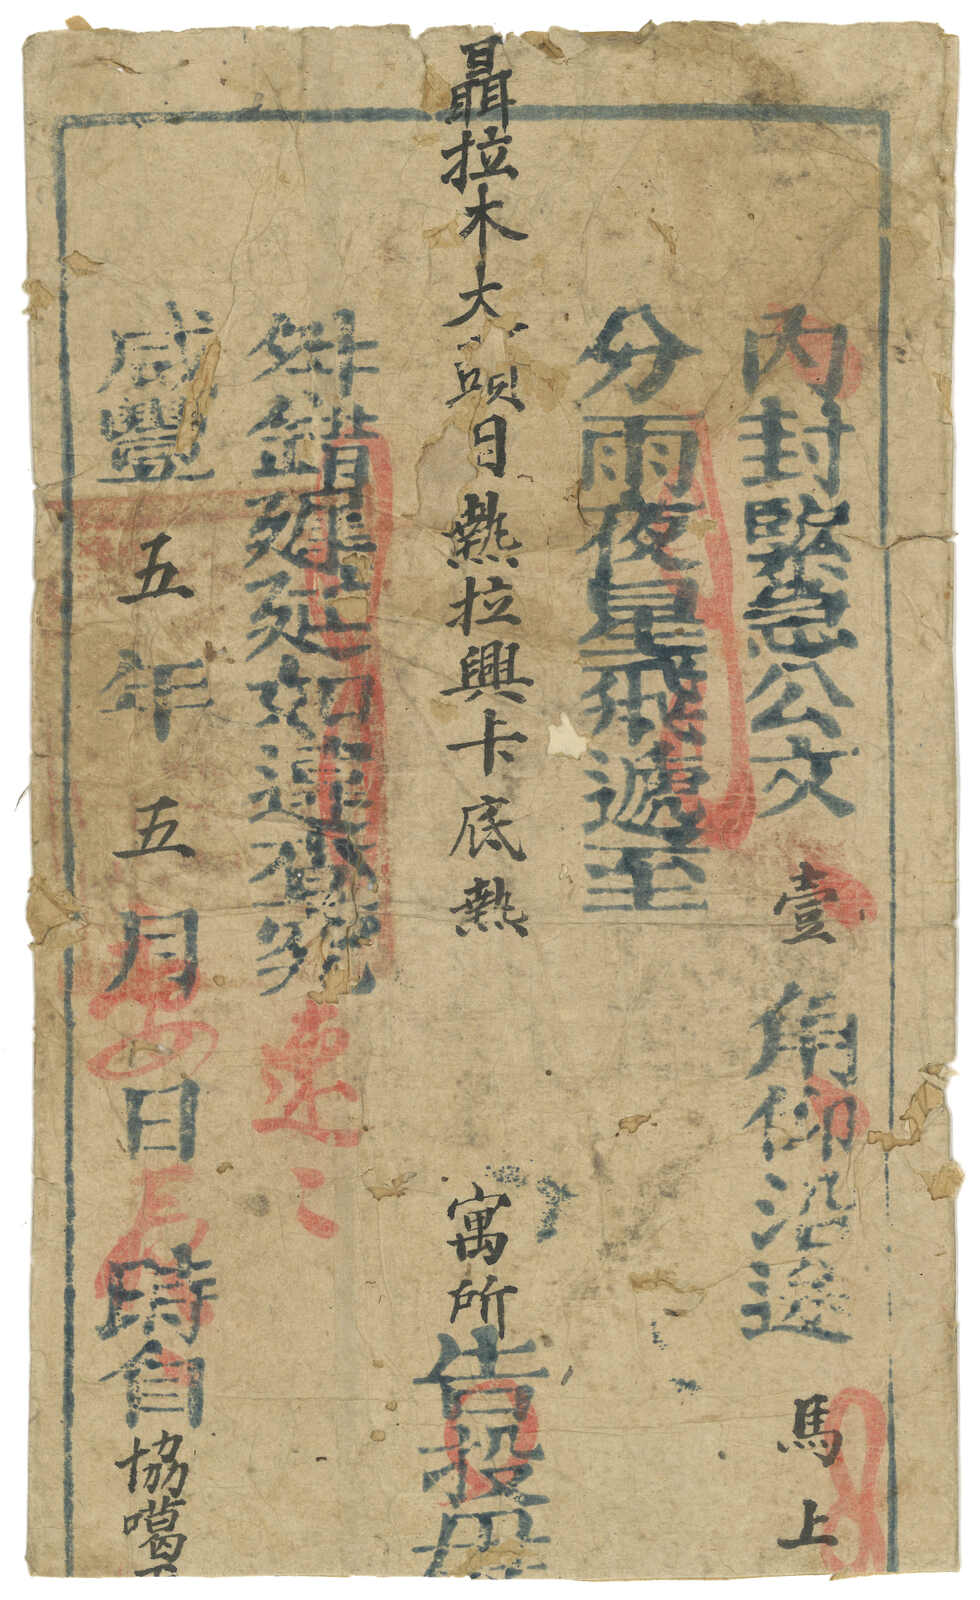 內封緊急公文壹角仰沿途馬上
分雨夜星飛遞至
聶拉木大頭目熱拉興卡底熱寓所告投毋
舛錯遲延如違查究速〻
咸豐五年五月初八日辰時自協噶